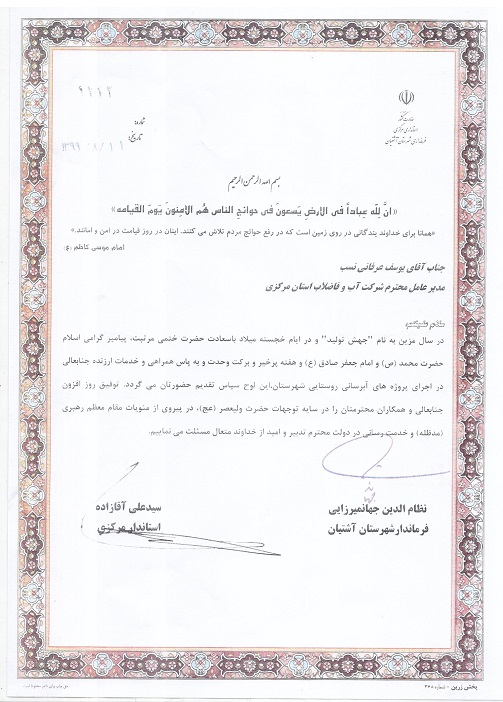 وزارت کشور
استانداری مرکزی
فرمانداری شهرستان آشتیان
شماره:
تاریخ:
بسم الله الرحمن الرحیم
« انَّ لِلّه عِباداً فی الارضِ یَسعونَ فی حوائجِ الناس هُم الامِنونَ یَومَ القیامه»
«همانا برای خداوند بندگانی در روی زمین است که در رفع حوائج مردم تلاش می کنند. اینان در روز قیامت در امن و امانند.»
امام موسی کاظم (ع)
جناب آقای یوسف عرفانی نسب
مدیر عامل محترم شرکت آب و فاضلاب استان مرکزی
سلام علیکم
در سال مزین به نام "جهش تولید" و در ایام خجسته میلاد باسعادت حضرت ختمی مرتبت، پیامبر گرامی اسلام
حضرت محمد (ص) و امام جعفر صادق (ع) و هفته پرخیر و برکت وحدت و به پاس همراهی و خدمات ارزنده جنابعالی
در اجرای پروژه های آبرسانی روستایی شهرستان،این لوح سپاس تقدیم حضورتان می گردد. توفیق روز افزون
جنابعالی و همکاران محترمتان را در سایه توجهات حضرت ولیعصر (عج)، در پیروی از منویات مقام معظم رهبری
(مدظله) و خدمت رسانی در دولت محترم تدبیر و امید از خداوند متعال مسئلت می نماییم.
نظام الدین جهانمیرزایی
فرماندارشهرستان آشتیان
سیدعلی آقازاده
استاندار مرکزی
پخش زرین - شماره ۲۶۸